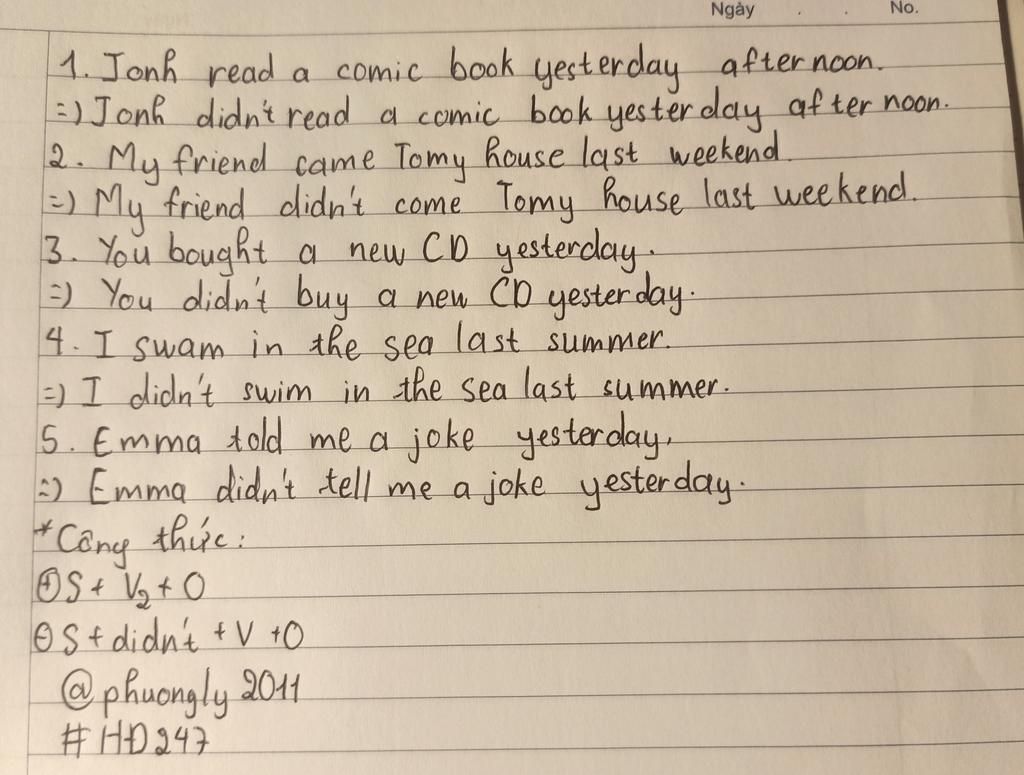 Ngày . . No.
1. Jonh read a comic book yesterday afternoon.
=) Jonh didn't read a comic book yesterday afternoon.
2. My friend came Tomy house last weekend.
=) My friend didn't come Tomy house last weekend.
3. You bought a new CD yesterday.
=) You didn't buy a new CD yesterday.
4. I swam in the sea last summer.
=) I didn't swim in the sea last summer.
5. Emma told me a joke yesterday.
=) Emma didn't tell me a joke yesterday.
*Công thức:
⊕ S + V₂ + O
⊖ S + didn't + V + O
@phuongly 2011
#HĐ247